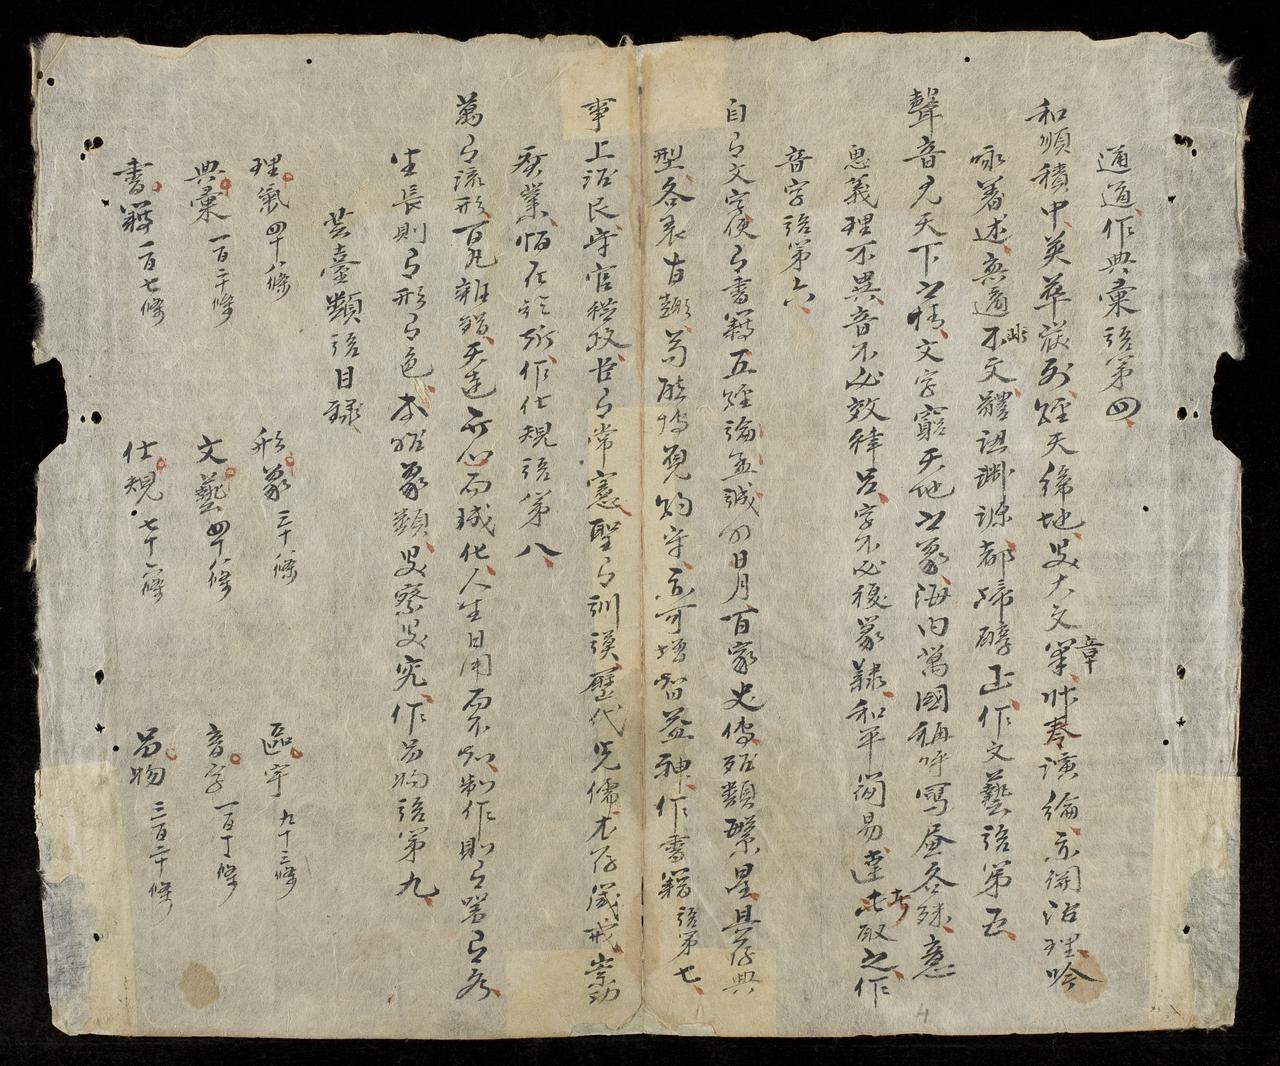 通道作典彙語第四
和順積中英華發列經天緯地思大文章黼黻黃綸亦關治理吟
咏着述奚適不文體認淵源都歸醇正作文藝語第五
聲音見天下之情文字窮天地之象海内萬國稱呼寫届各殊意
思義理不異音不必效律呂字不必復篆隸和平簡易達者取之作
音字語第六
自有文字便有書籍五經論孟誠如日月百家史傳班類繁星具存典
型各表旨趣苟能博覽約守亦可增智益神作書籍語第七
事上治民守官從政古有常憲聖有訓謨歷代先儒尤存箴戒崇功
廣業恒在於斯作仕規語第八
萬有流形百凡雜錯天造所以而成化人生日用而不知制作則有器有名
生長則有形有色本始象類思察思究作品物語第九
芸臺類語目錄
理氣四十八條 形象三十條 區宇九十三條
典彙一百二十條 文藝四十八條 音字一百十條
書籍一百七條 仕規七十六條 品物三百二十條